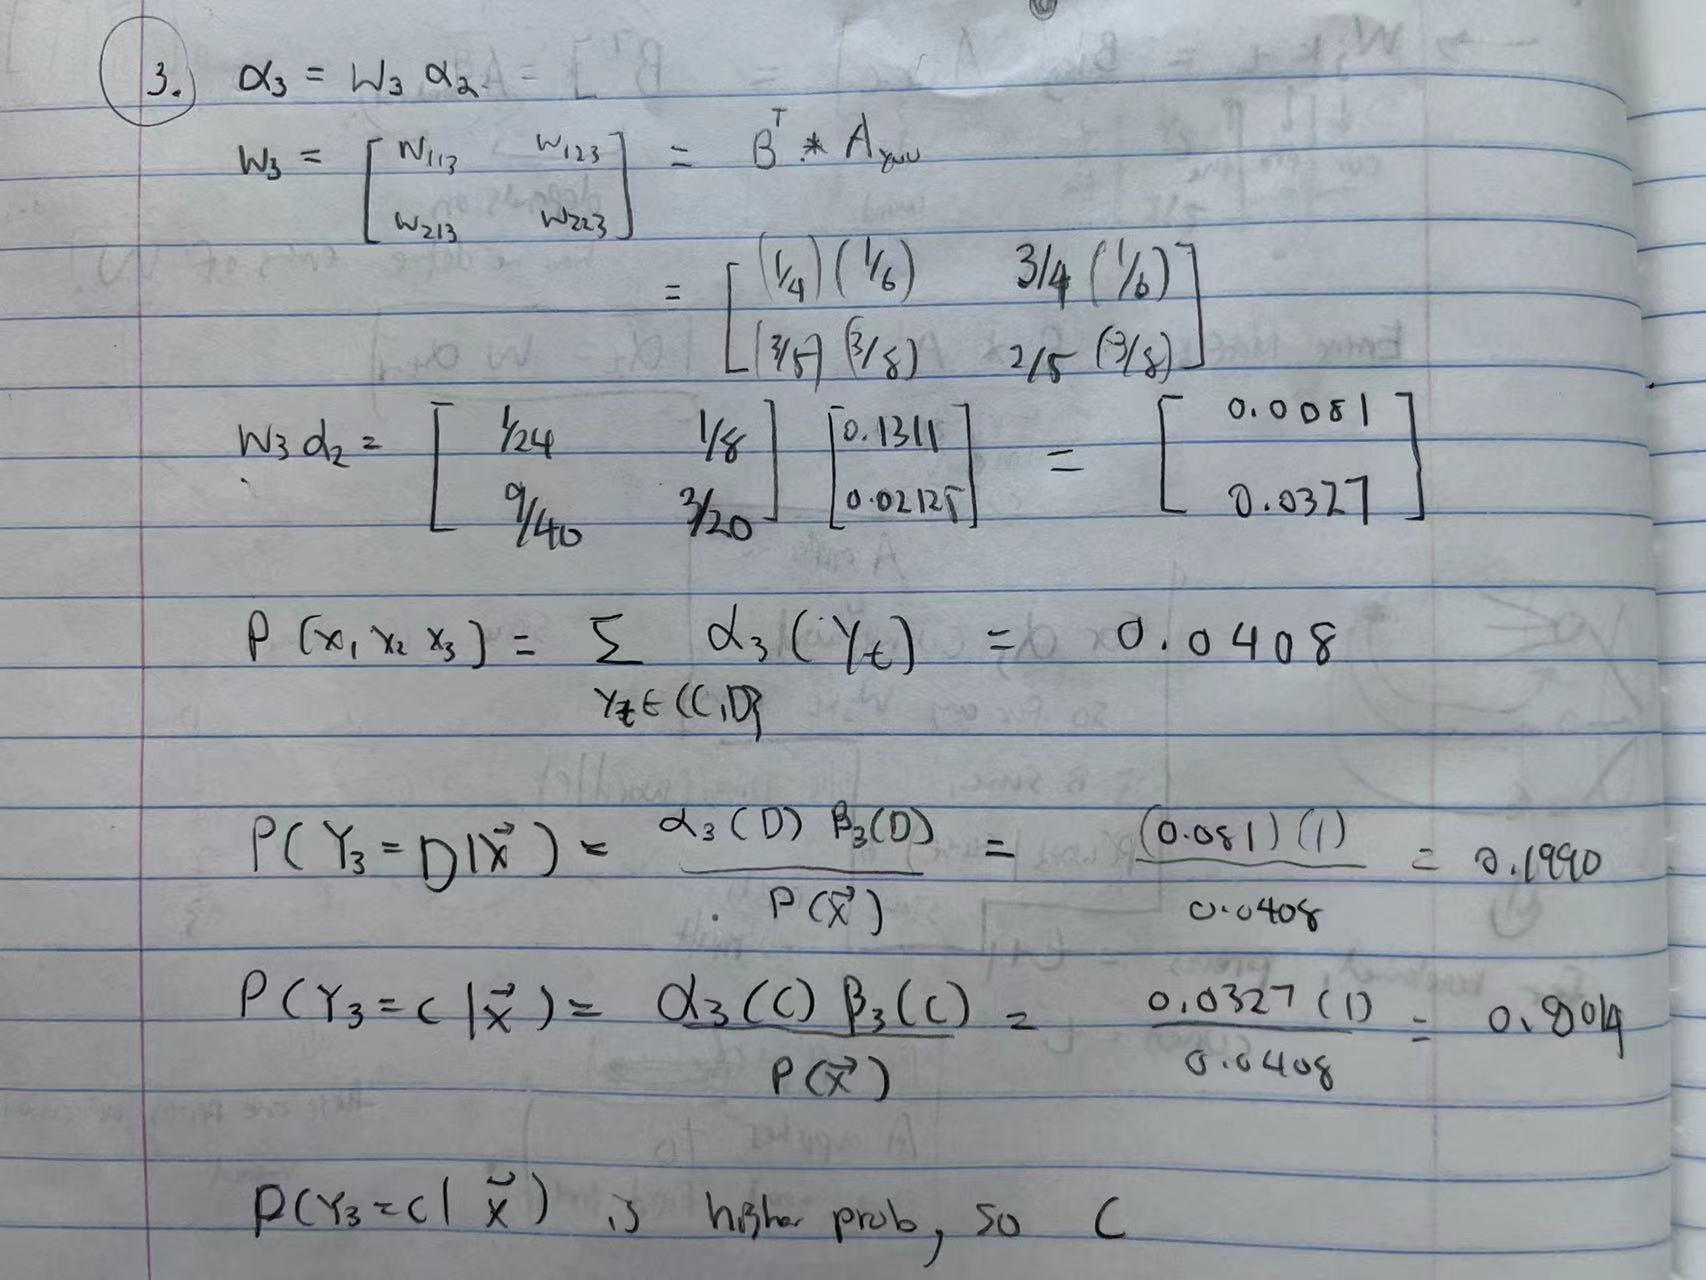 3. α₃ = W₃ α₂
W₃ = [ W₁₁₃ W₁₂₃ ; W₂₁₃ W₂₂₃ ] = Bᵀ .* A
= [ (1/4)(1/6) 3/4 (1/6) ; (3/5)(3/8) 2/5 (3/8) ]
W₃ α₂ = [ 1/24 1/8 ; 9/40 3/20 ] [ 0.1311 ; 0.02125 ] = [ 0.0081 ; 0.0327 ]
P(x₁ x₂ x₃) = Σ α₃(Yₜ) = 0.0408
Yₜ ∈ {C,D}
P(Y₃=D|x⃗) = α₃(D) β₃(D) / P(x⃗) = (0.081)(1) / 0.0408 = 0.1990
P(Y₃=C|x⃗) = α₃(C) β₃(C) / P(x⃗) = 0.0327 (1) / 0.0408 = 0.8014
P(Y₃=C|x⃗) is higher prob, so C